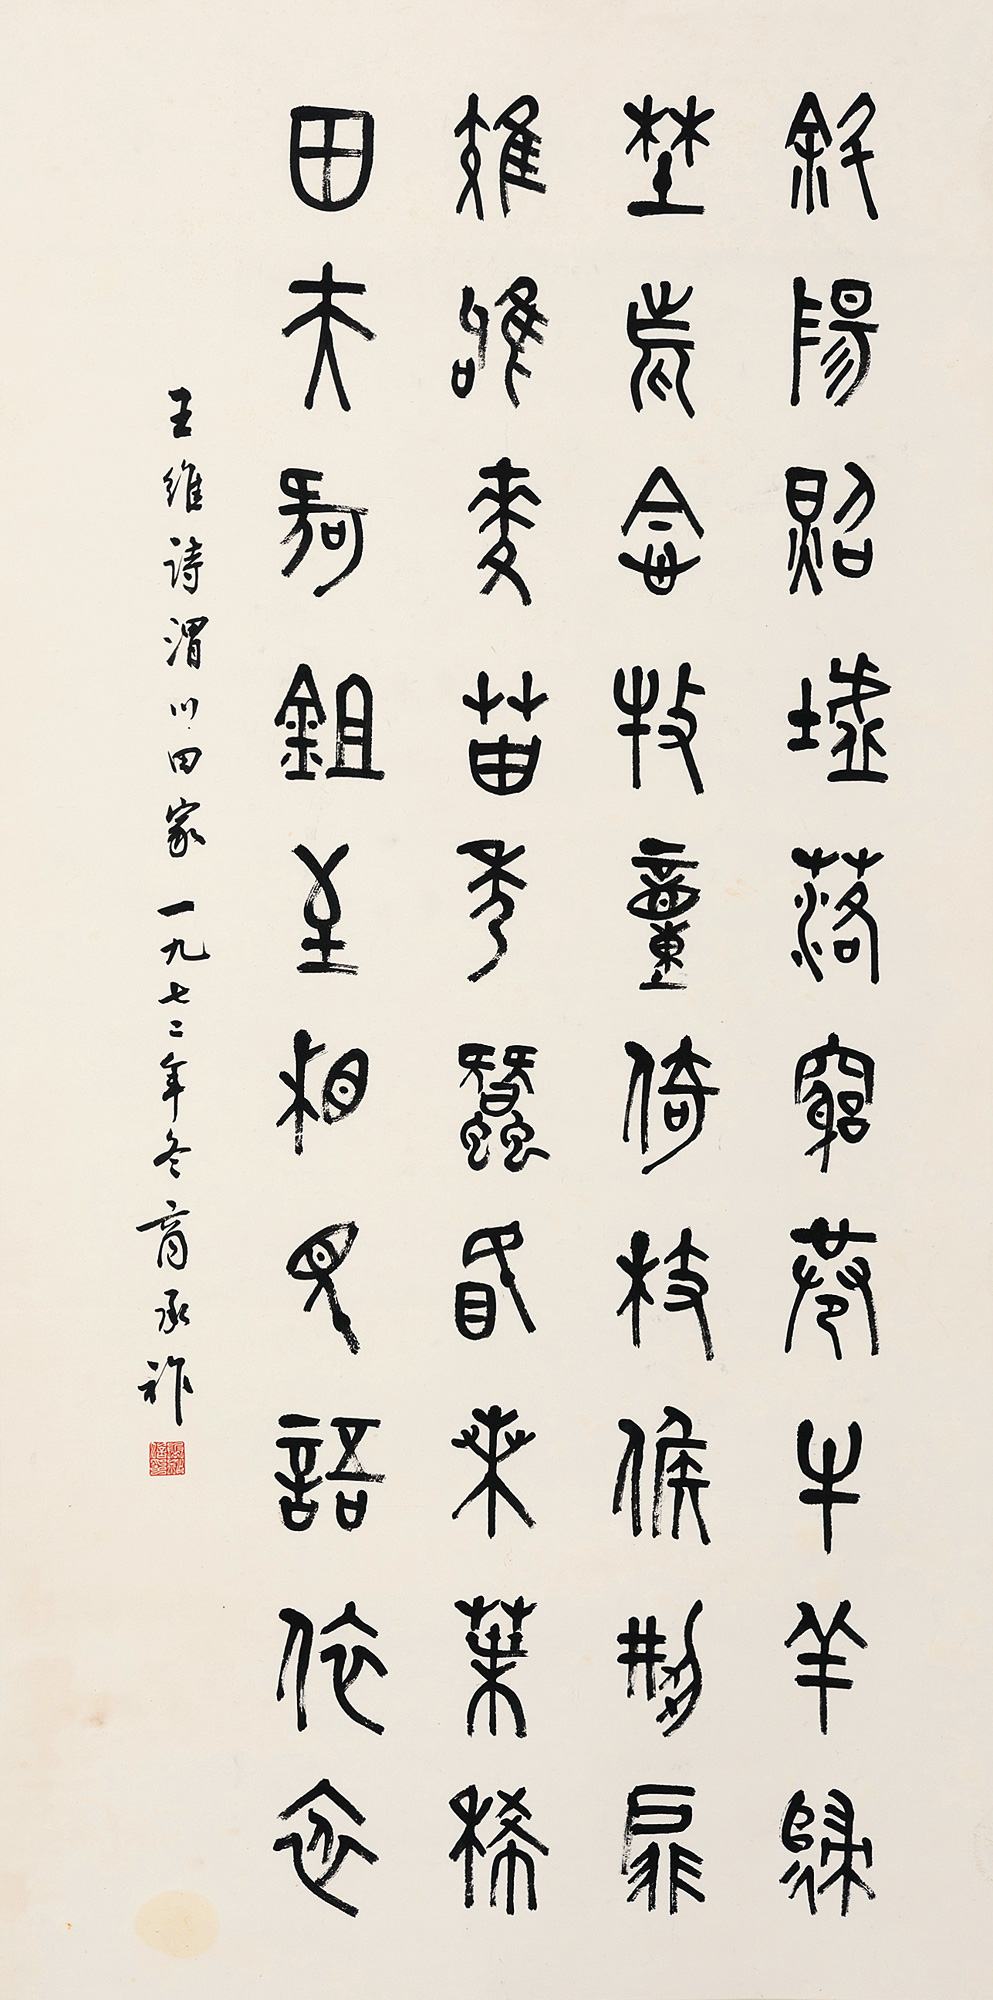 斜陽照墟落窮巷牛羊歸
野老念牧童倚杖候荊扉
雉雊麥苗秀蠶眠桑葉稀
田夫荷鋤至相見語依依
王維詩渭川田家一九七二年冬商承祚